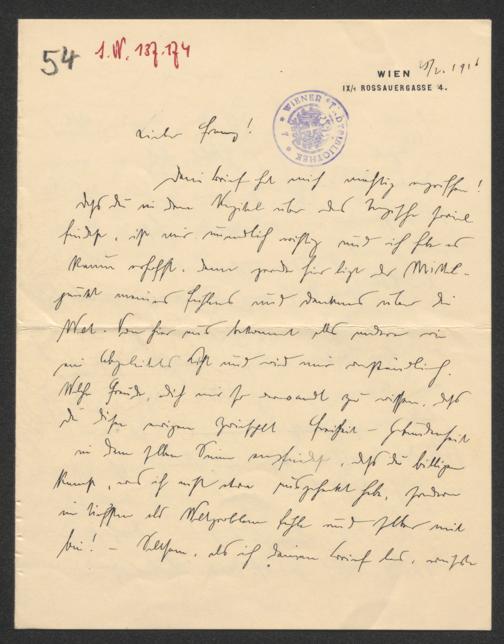 54
I.N. 137.174
WIEN 1916
IX/1 ROSSAUERGASSE 4.
WIENER STADTBIBLIOTHEK
Lieber Franz!
Dein Brief hat mich mächtig ergriffen!
Daß du in dem Kapitel über das Tragische
findest, ist mir unendlich wichtig und ich habe es
kaum erhofft, denn gerade hier liegt der Mittel-
punkt meines Fühlens und Denkens über die
Welt. Von hier aus bekommt alles andere
ein Licht und wird mir verständlich.
Welche Freude, dich mir so verwandt zu wissen, daß
du diesen ewigen Zwiespalt Freiheit – Gebundenheit
in dem selben Sinn empfindest, daß du billigen
kannst, was ich nicht etwa ausgeheckt habe, sondern
im tiefsten als Weltproblem fühle und selber mit
bin! – Seltsam, als ich deinen Brief las, wußte